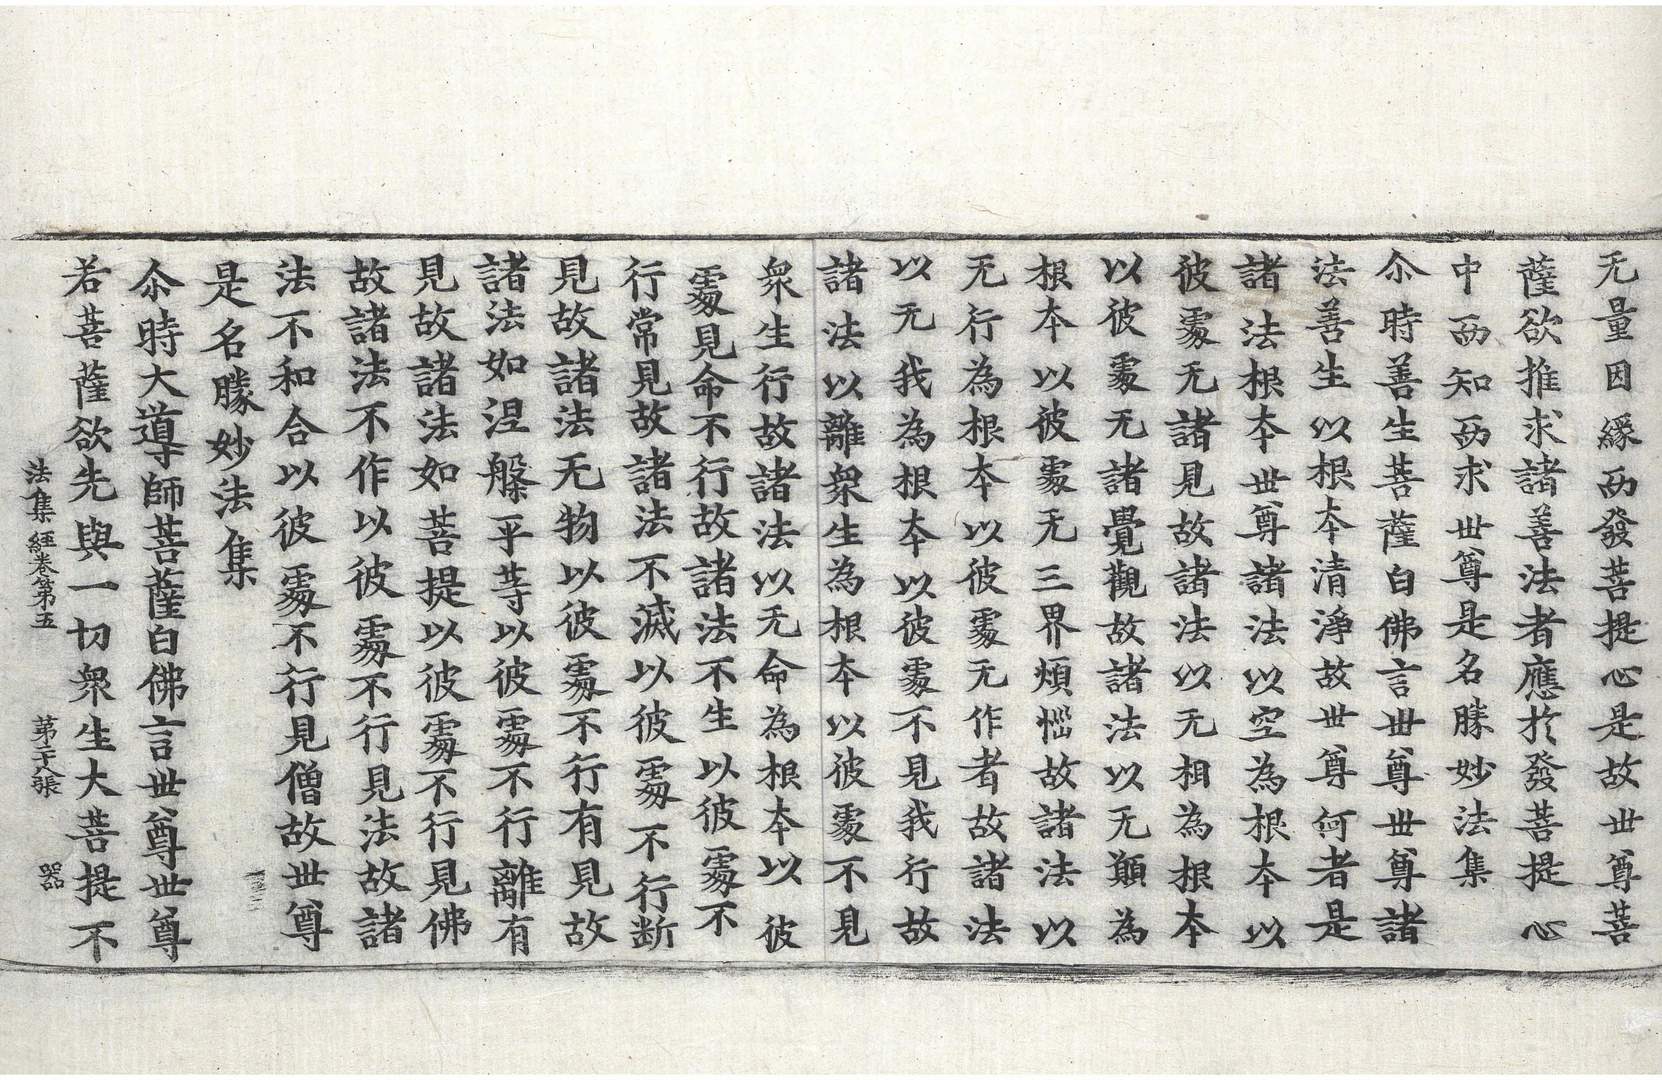 无量因縁而發菩提心是故世尊菩
薩欲推求諸善法者應於發菩提心
中而知而求世尊是名勝妙法集
尒時善生菩薩白佛言世尊世尊諸
法善生以根本清淨故世尊何者是
諸法根本世尊諸法以空為根本以
彼處无諸見故諸法以无相為根本
以彼處无諸覺觀故諸法以无願為
根本以彼處无三界煩惱故諸法以
无行為根本以彼處无作者故諸法
以无我為根本以彼處不見我行故
諸法以離衆生為根本以彼處不見
衆生行故諸法以无命為根本以彼
處見命不行故諸法不生以彼處不
行常見故諸法不滅以彼處不行断
見故諸法无物以彼處不行有見故
諸法如涅槃平等以彼處不行離有
見故諸法如菩提以彼處不行見佛
故諸法不作以彼處不行見法故諸
法不和合以彼處不行見僧故世尊
是名勝妙法集
尒時大導師菩薩白佛言世尊世尊
若菩薩欲先與一切衆生大菩提不
法集經卷第五 第二十八張 器